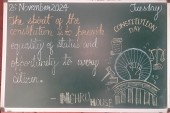 26 November 2024 Tuesday
The spirit of the
constitution is to provide
equality of status and
opportunity to every
citizen.
CONSTITUTION
DAY
HOUSE